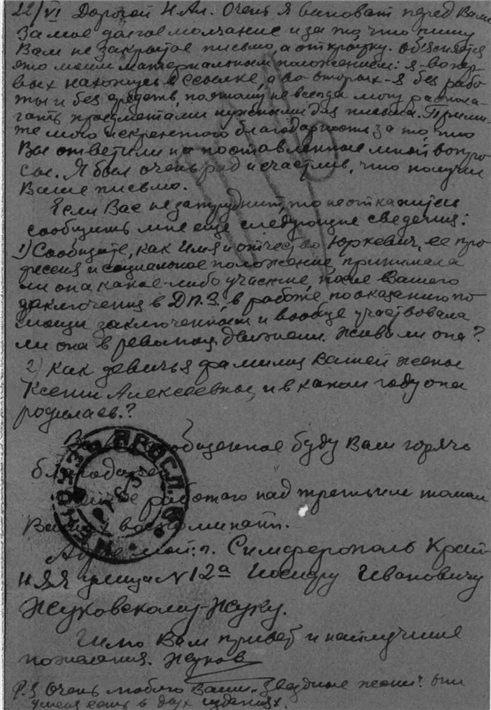 22/VI Дорогой Н. Ал. Очень я виноват перед Вами
за мое долгое молчание и за то, что пишу
Вам не закрытое письмо, а открытку. Объясняется
это моим материальным положением: я во-пер-
вых нахожусь в ссылке, а во-вторых - я без рабо-
ты и без средств, поэтому не всегда могу распола-
гать предметами нужными для письма. Прими-
те мою искреннюю благодарность за то, что
Вы ответили на поставленные мной вопро-
сы. Я был очень рад и счастлив, что получил
Ваше письмо.
Если Вас не затруднит, то не откажитесь
сообщить мне еще следующие сведения:
1) Сообщите, как имя и отчество Юркевич, ее про-
фессия и социальное положение, принимала
ли она какое-либо участие, после Вашего
заключения в Д.П.З., в работе по оказанию по-
мощи заключенным и вообще участвовала
ли она в революц. движении. Жива ли она?
2) Как девичья фамилия Вашей жены
Ксении Алексеевны, и в каком году она
родилась?
За сообщенное буду Вам горячо
благодарен.
работаю над третьим томом
Ваших воспоминаний.
Адрес мой: г. Симферополь Край-
няя улица N 12а Иосифу Ивановичу
Жуковскому-Жуку.
Шлю Вам привет и наилучшие
пожелания. Жуков
P.S Очень люблю Ваши "Звездные песни". Они
у меня есть в двух изданиях.
НЕКОУЗ ЯРОСЛ.